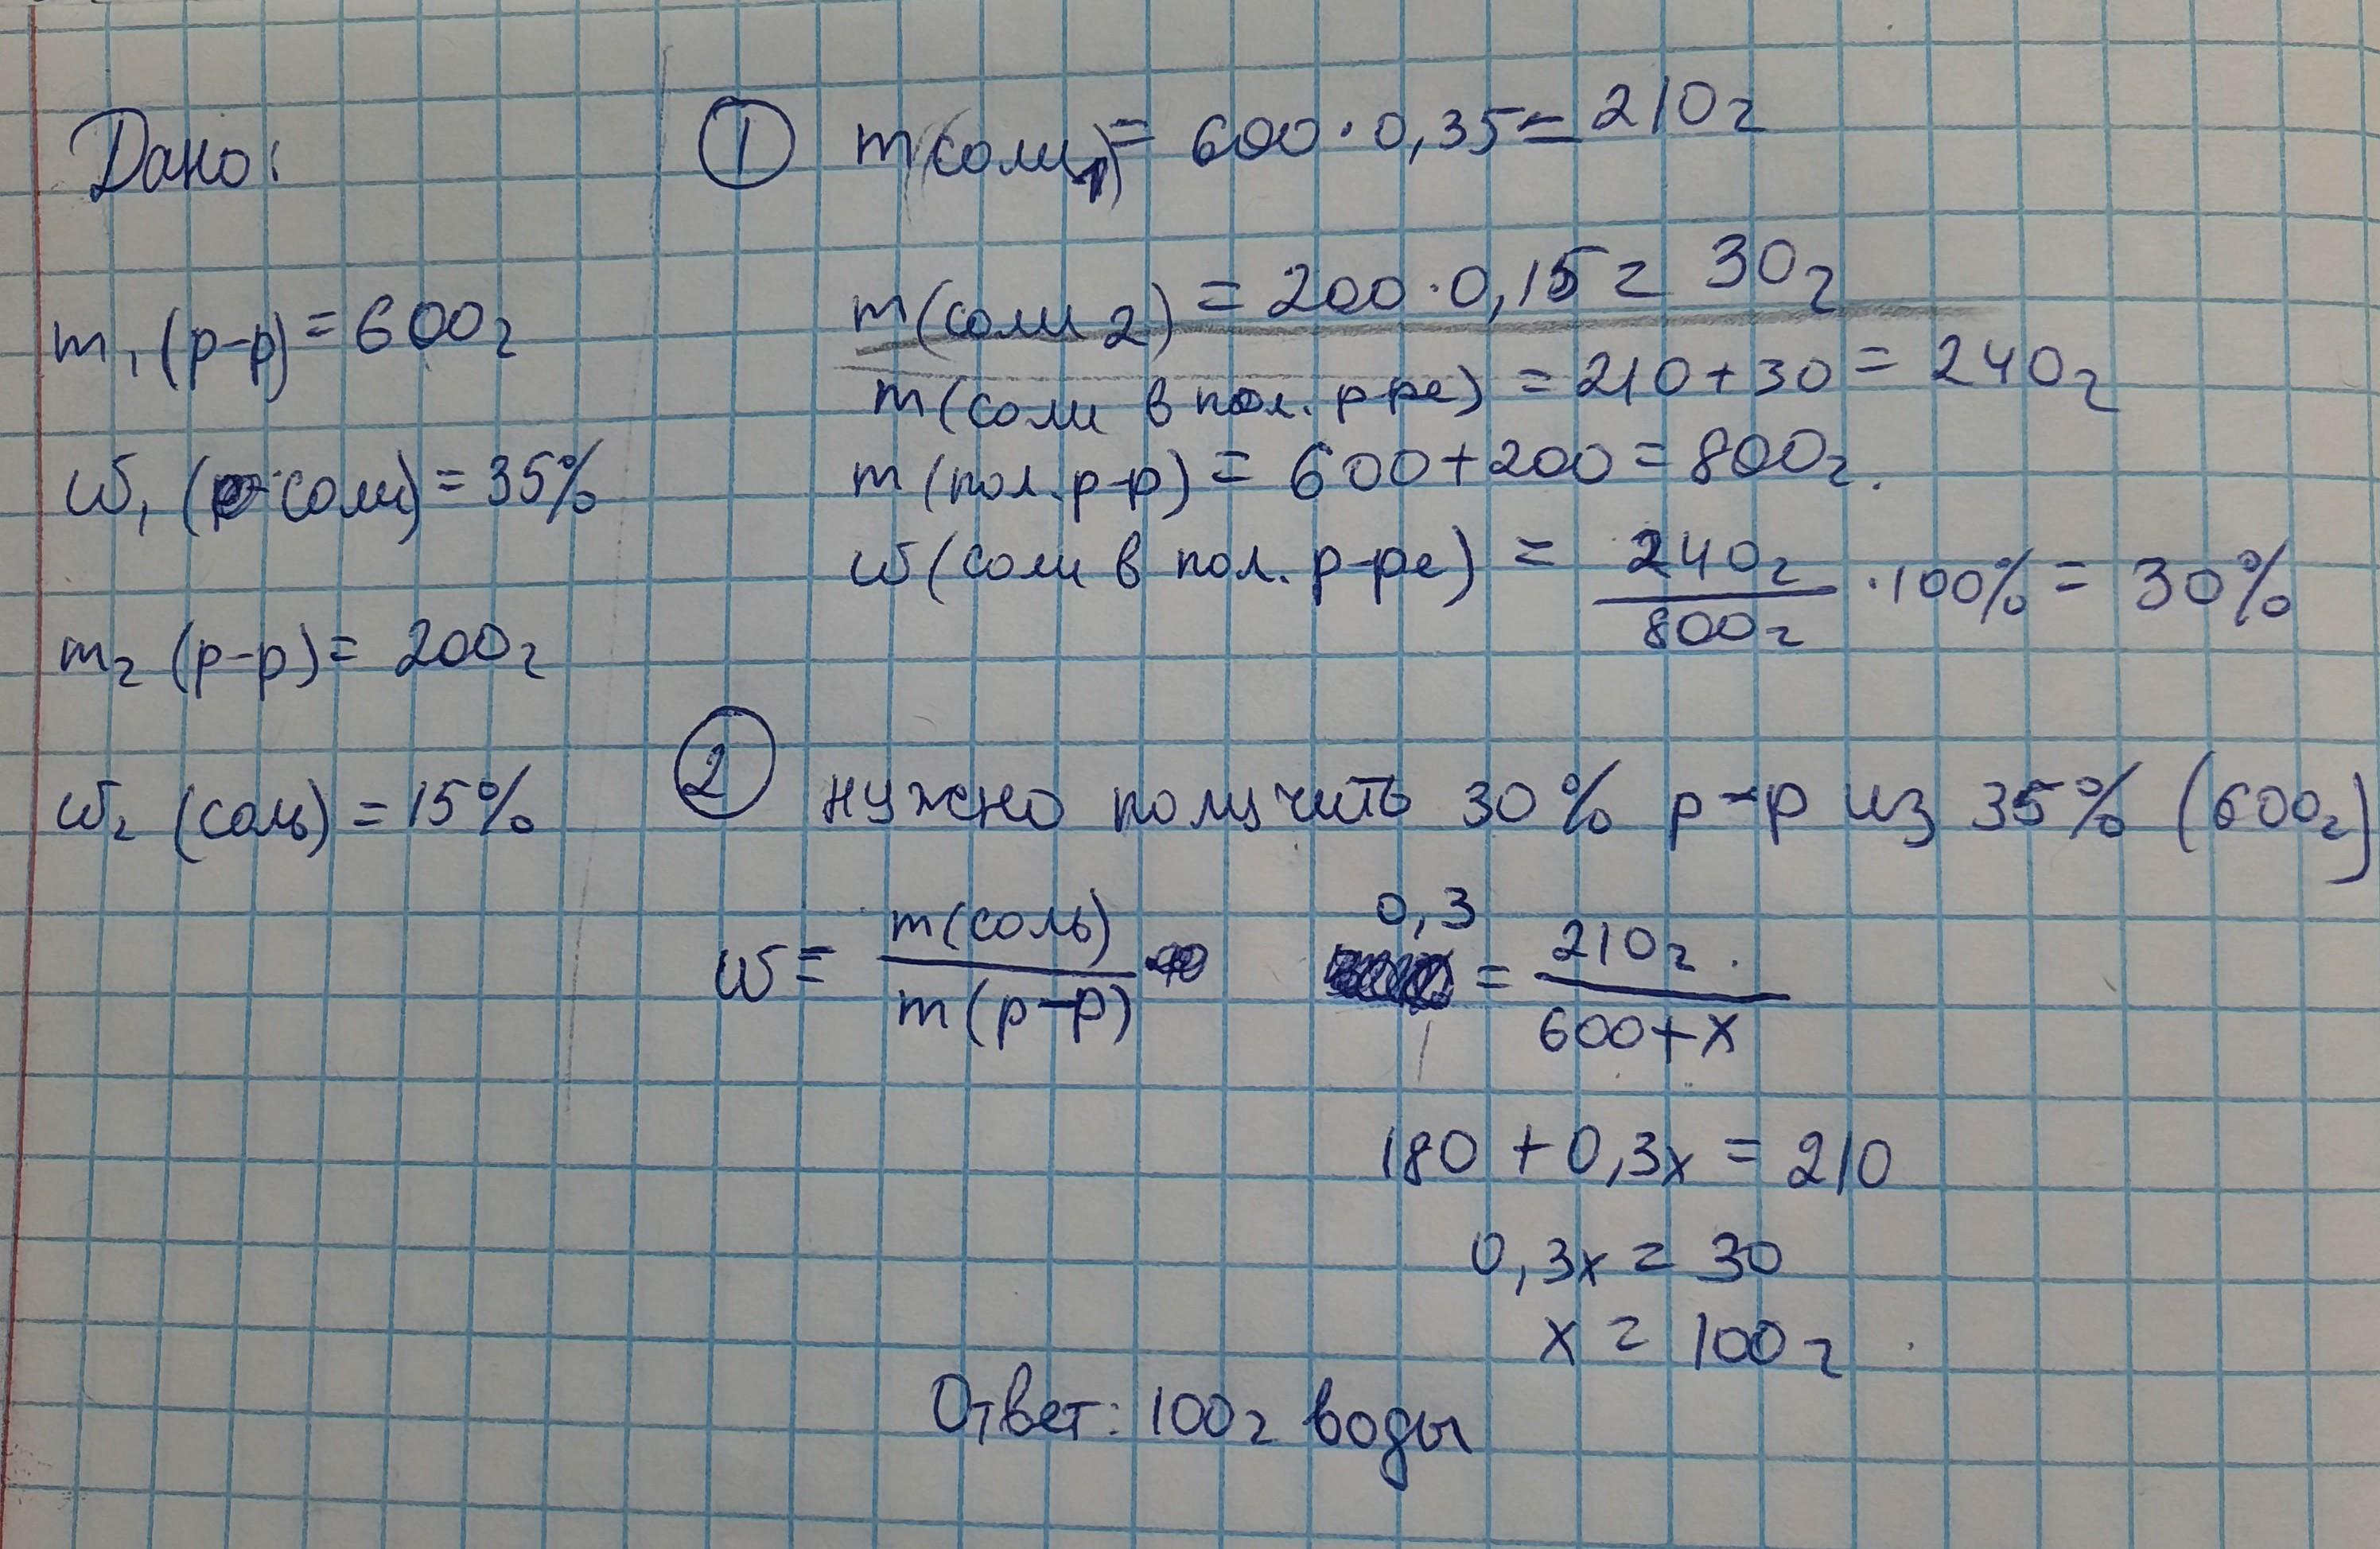 Дано:
m₁ (р-р) = 600г
ω₁ (соли) = 35%
m₂ (р-р) = 200г
ω₂ (соль) = 15%
① m(соли₁) = 600·0,35 = 210г
m(соли 2) = 200·0,15 = 30г
m(соли в пол. р-ре) = 210+30 = 240г
m(пол. р-р) = 600+200 = 800г.
ω(соли в пол. р-ре) = 240г/800г ·100% = 30%
② нужно получить 30% р-р из 35% (600г)
ω = m(соль)/m(р-р) 0,3 = 210г/600+x
180 + 0,3x = 210
0,3x = 30
x = 100г
Ответ: 100г воды